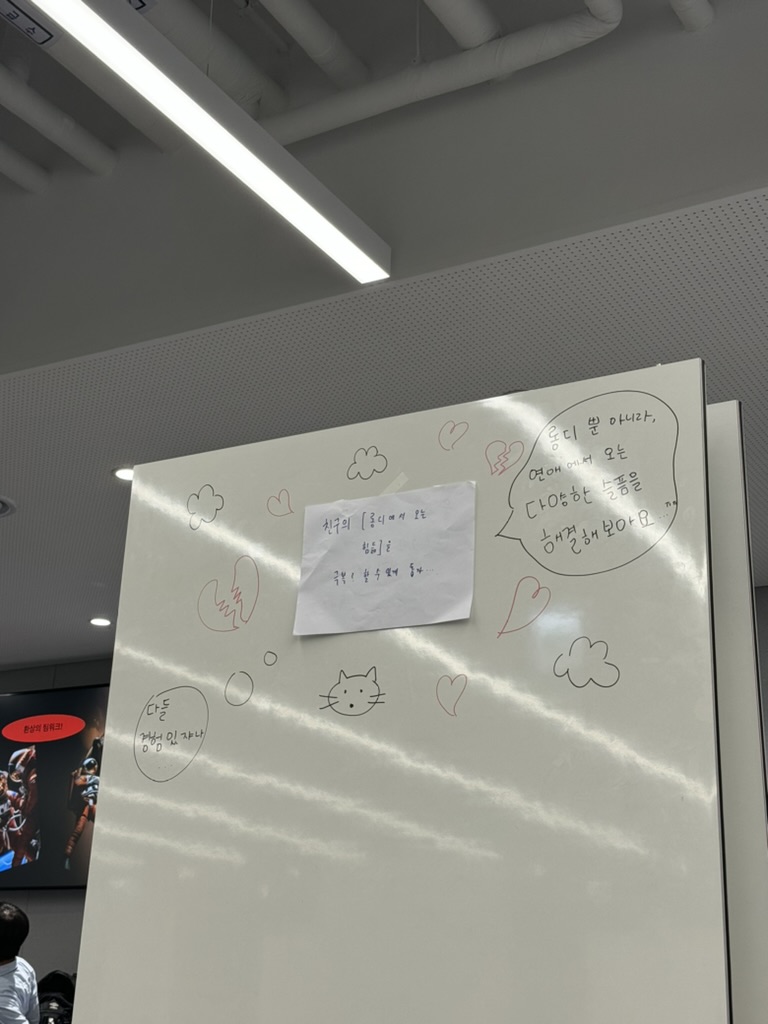 친구의 [롱디에서 오는
힘듦]을
극복! 할 수 있게 돕자...
롱디 뿐 아니라,
연애에서 오는
다양한 슬픔을
해결해보아요...ㅠㅠ
다들
경험 있쟈나
...
환상의 팀워크!